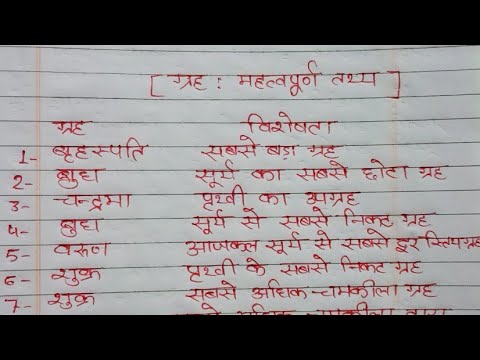 [ ग्रह : महत्वपूर्ण तथ्य ]
ग्रह विशेषता
1- बृहस्पति सबसे बड़ा ग्रह
2- बुध सूर्य का सबसे छोटा ग्रह
3- चन्द्रमा पृथ्वी का उपग्रह
4- बुध सूर्य से सबसे निकट ग्रह
5- वरूण आजकल सूर्य से सबसे दूर स्थित ग्रह
6- शुक्र पृथ्वी के सबसे निकट ग्रह
7- शुक्र सबसे अधिक चमकीला ग्रह